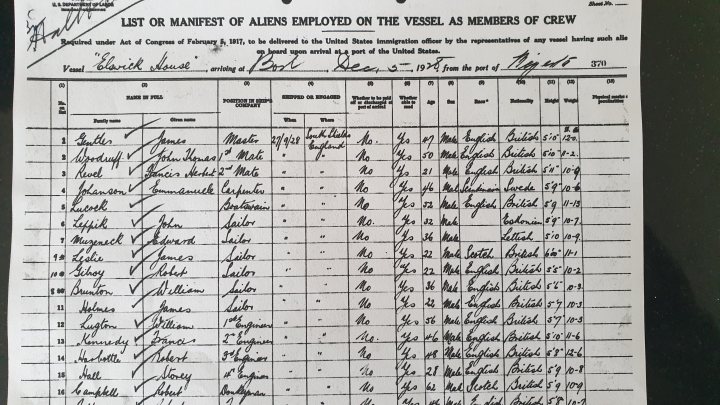 U. S. DEPARTMENT OF LABOR
Sheet No.
Halifax
LIST OR MANIFEST OF ALIENS EMPLOYED ON THE VESSEL AS MEMBERS OF CREW
Required under Act of Congress of February 5, 1917, to be delivered to the United States Immigration officer by the representatives of any vessel having such alie
on board upon arrival at a port of the United States.
Vessel "Elswick House", arriving at Bost Dec, 5 - 1928 from the port of 370
(1) (2) (3) (4) (5) (6) (7) (8) (9) (10) (11) (12) (13)
No. on list NAME IN FULL Family name Given name POSITION IN SHIP'S COMPANY SHIPPED OR ENGAGED When Where Whether to be paid off or discharged at port of arrival Whether able to read Age Sex Race* Nationality Height Weight Physical marks or peculiarities
1 Gentles James Master 27/9/28 South Shields England No. Yes 47 Male English British 5'10 12-0
2 Woodruff John Thomas 1st Mate " " No Yes 50 Male English British 5'10 11-2
3 Revel Francis Herbert 2nd Mate " " No Yes 21 Male English British 5'11 10-9
4 Johanson Emmanuele Carpenter " " No Yes 46 Male Scandinavn Swede 5'9 10-6
5 Lucock Boatswain " " No Yes 52 Male English British 5'9 11-13
6 Leppik John Sailor " " No. Yes 32 Male Esthonian 5'9 10-7
7 Muzeneck Edward Sailor " " No Yes 36 Male Lettish 5'10 10-9
Leslie James Sailor " " No Yes 22 Male Scotch British 6'00 11-1
Gilroy Robert Sailor " " No Yes 22 Male English British 5'5 10-2
Brunton William Sailor " " No Yes 36 Male English British 5'6 10-3
11 Holmes James Sailor " " No Yes 22 Male English British 5'7 10-3
12 Lugton William 1st Engineer " " No Yes 56 Male English British 5'7 10-3
13 Kennedy Francis 2nd Engineer " " No. Yes 46 Male English British 5'10 11-6
14 Harbottle Robert 3rd Engineer " " No Yes 48 Male English British 5'8 12-6
15 Hall Storey 4th Engineer " " No Yes 28 Male English British 5'9 10-8
16 Campbell Robert Donkeyman " " No Yes 62 Male Scotch British 5'9 10-9